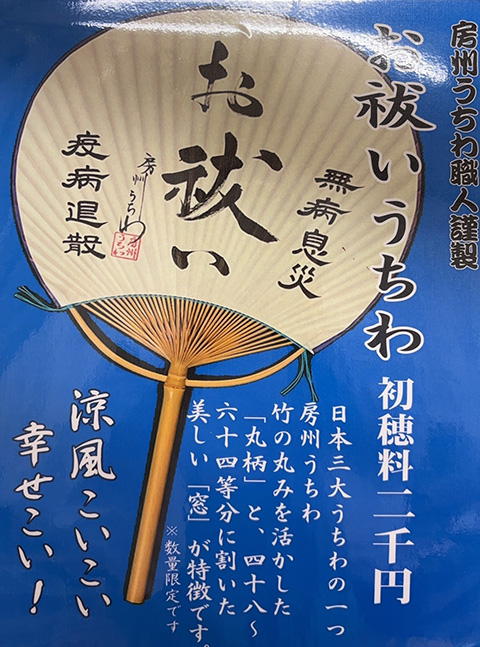 房州うちわ職人謹製
お祓いうちわ
初穂料二千円
無病息災
お祓い
房州うちわ
疫病退散
日本三大うちわの一つ
房州うちわ
竹の丸みを活かした
「丸柄」と、四十八〜
六十四等分に割いた
美しい「窓」が特徴です。
※数量限定です
涼風こいこい
幸せこい！